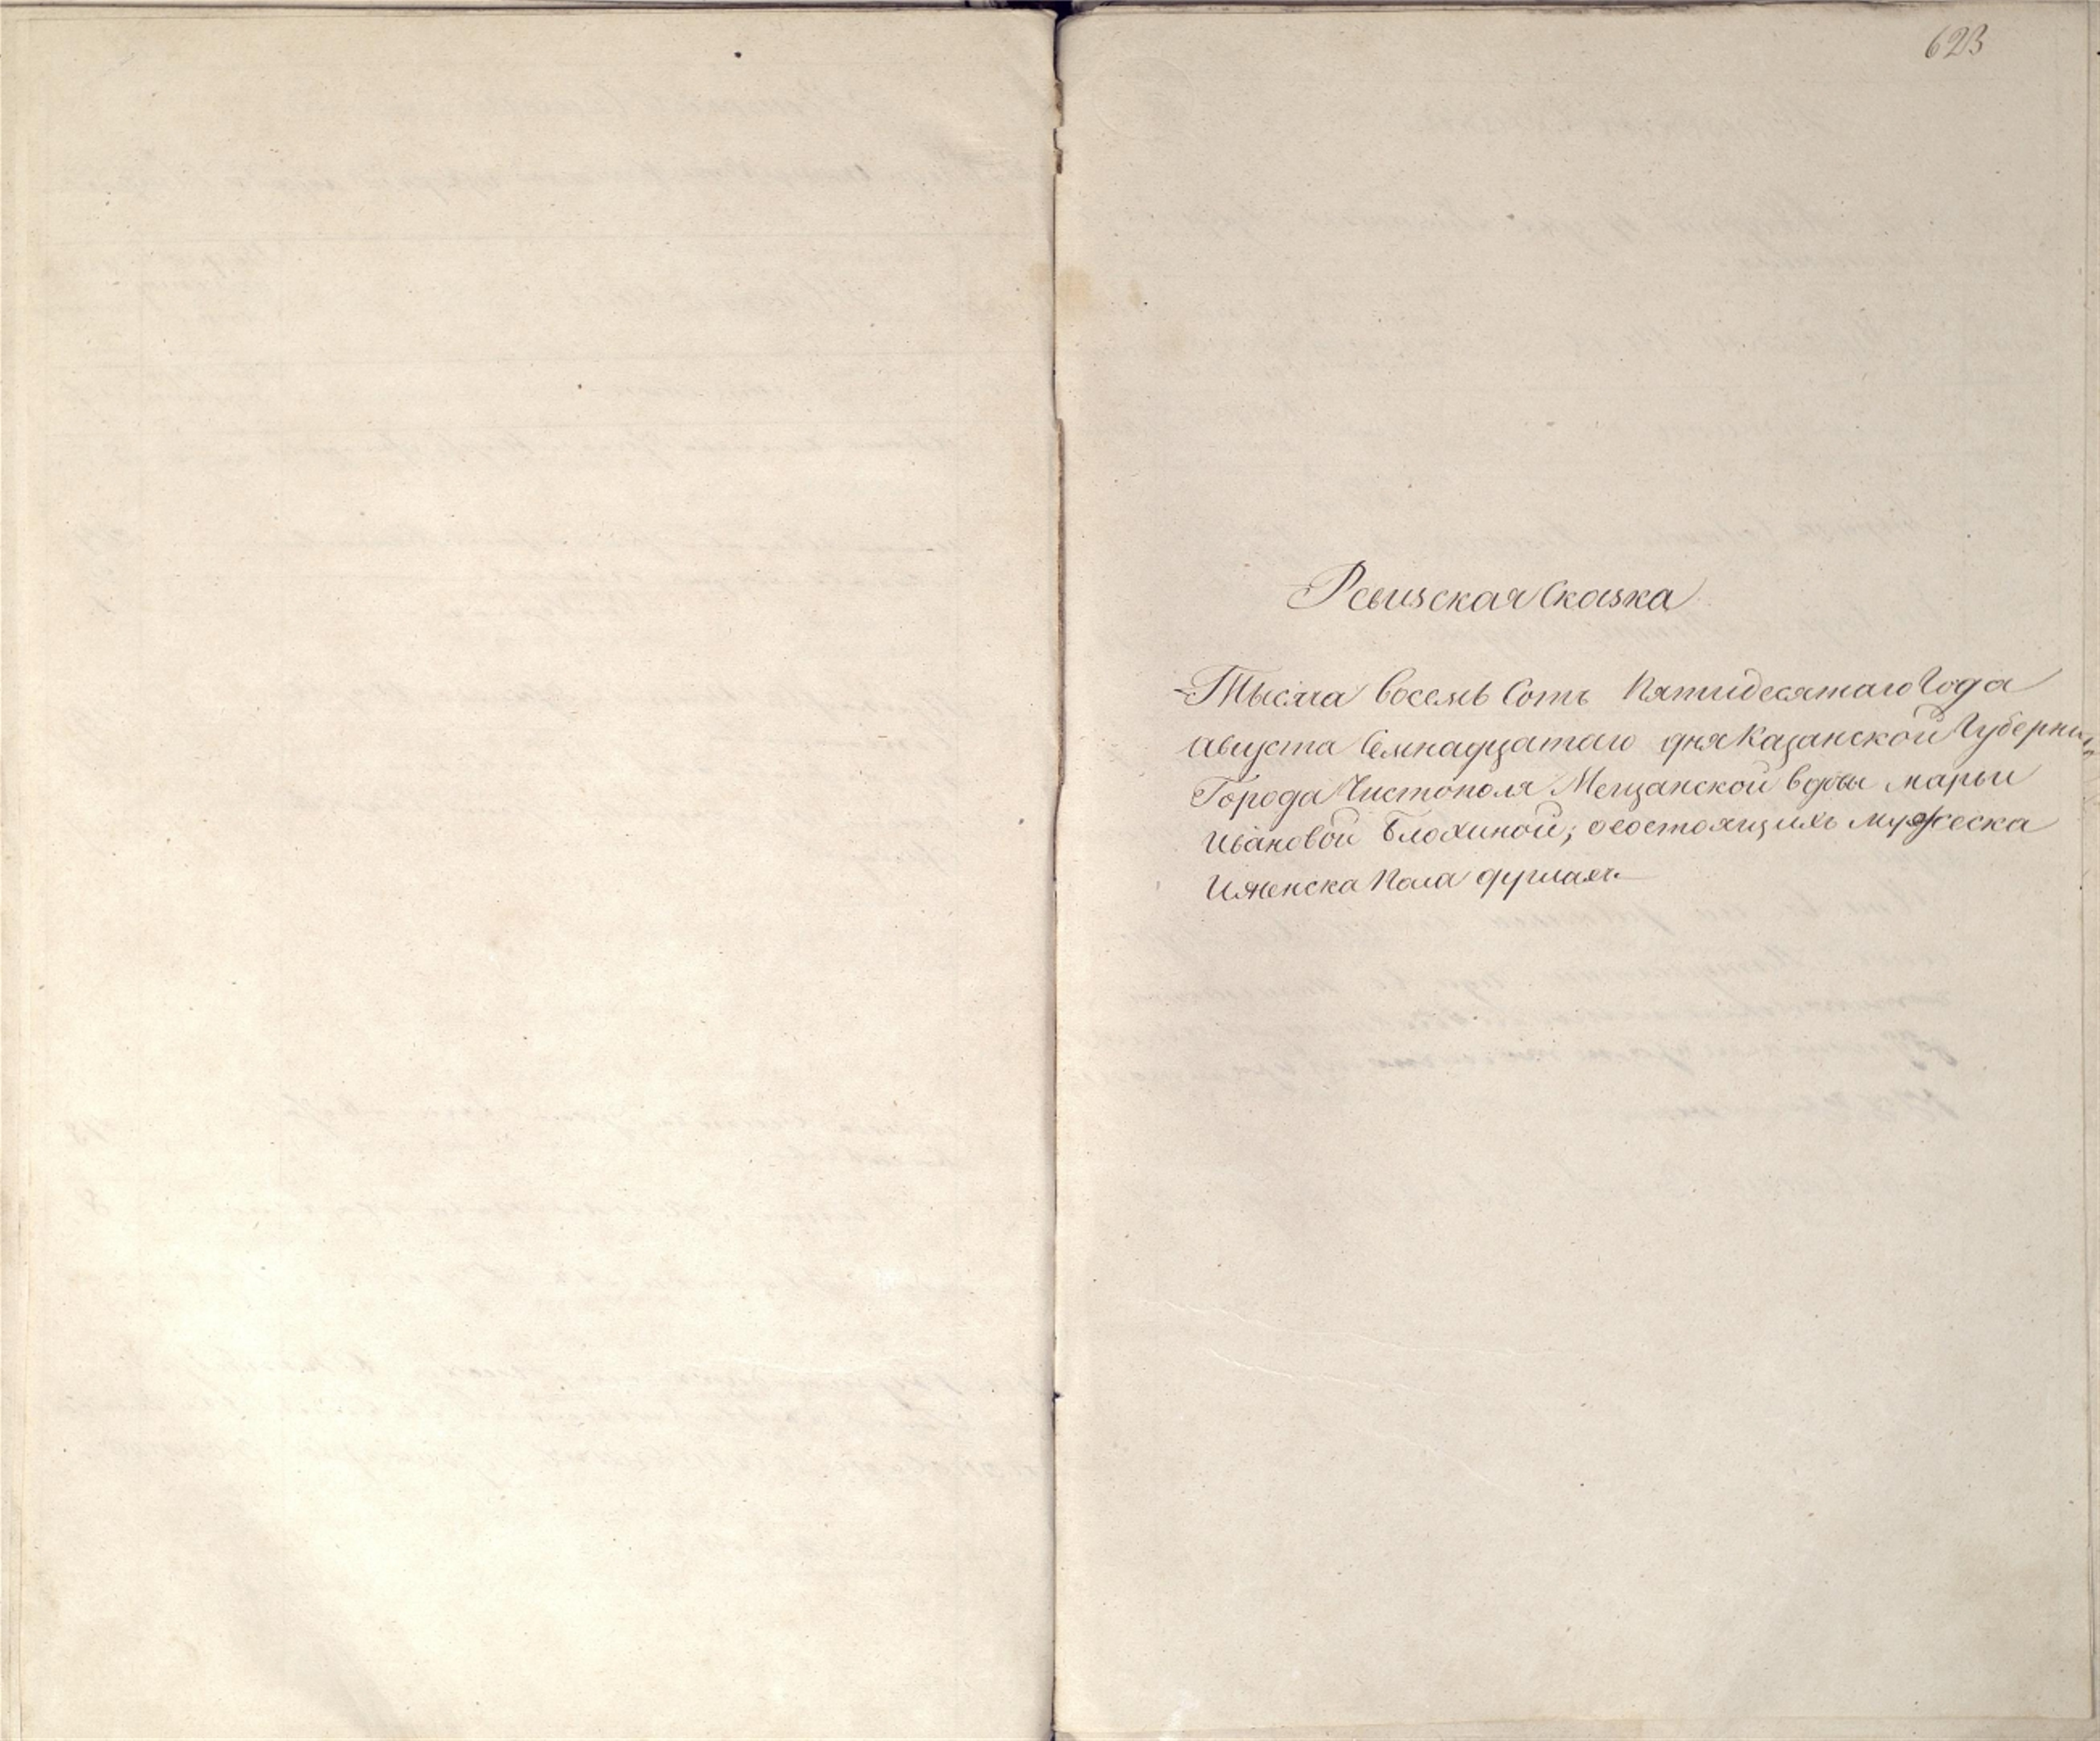 623
Ревизская Сказка
Тысяча восемь Сотъ Пятидесятаго Года
августа Семнадцатаго дня Казанской Губернии
Города Чистополя Мещанской вдовы марьи
Ивановой Блохиной; осостоящихъ мужеска
Иженска Пола душахъ.